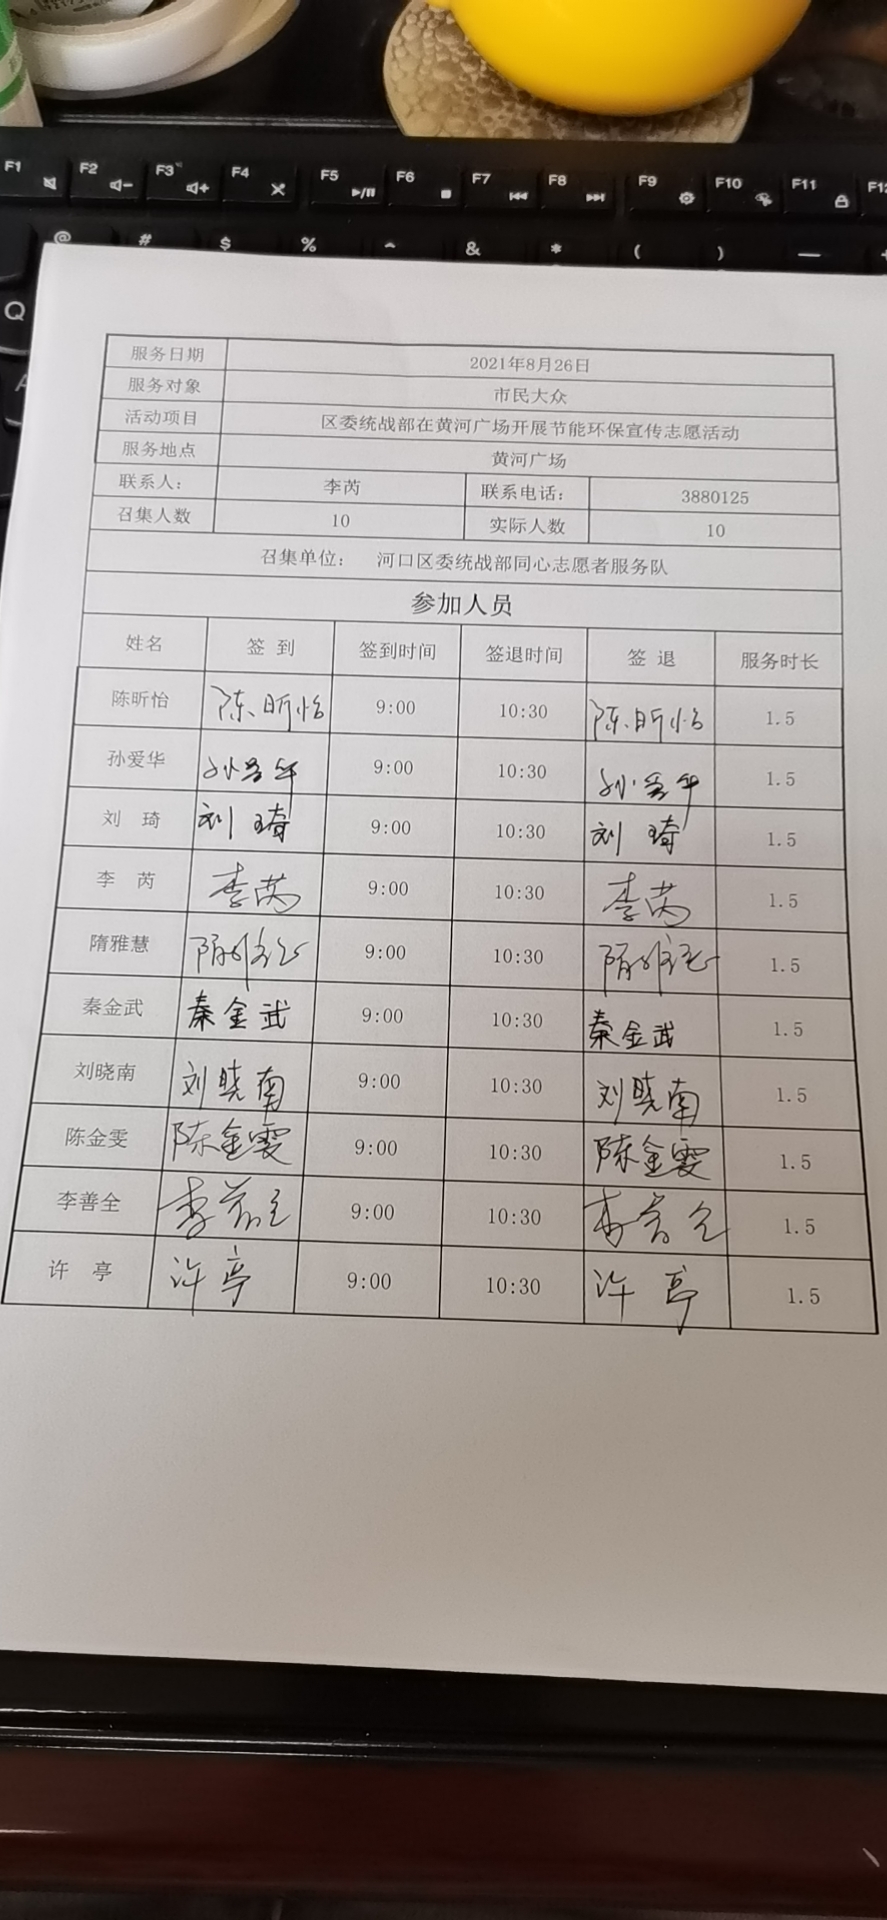 F1 F2 F3 F4 F5 F6 F7 F8 F9 F10 F11 F12
@ # $ % ^ & * ( ) —
Q
服务日期 2021年8月26日
服务对象 市民大众
活动项目 区委统战部在黄河广场开展节能环保宣传志愿活动
服务地点 黄河广场
联系人： 李芮 联系电话： 3880125
召集人数 10 实际人数 10
召集单位： 河口区委统战部同心志愿者服务队
参加人员
姓名 签 到 签到时间 签退时间 签 退 服务时长
陈昕怡 陈昕怡 9:00 10:30 陈昕怡 1.5
孙爱华 孙爱华 9:00 10:30 孙爱华 1.5
刘 琦 刘 琦 9:00 10:30 刘 琦 1.5
李 芮 李芮 9:00 10:30 李芮 1.5
隋雅慧 隋雅慧 9:00 10:30 隋雅慧 1.5
秦金武 秦金武 9:00 10:30 秦金武 1.5
刘晓南 刘晓南 9:00 10:30 刘晓南 1.5
陈金雯 陈金雯 9:00 10:30 陈金雯 1.5
李善全 李善全 9:00 10:30 李善全 1.5
许 亭 许亭 9:00 10:30 许亭 1.5